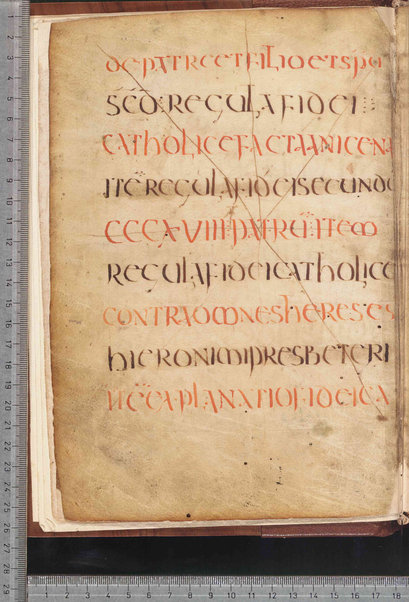 de patre et filio et spu
scdo: regula fidei:
catholice facta a nicena
ite regula fidei secundo
cccxviii patru: item
regula fidei catholice
contra omnes hereses
hieronimi presbeteri
explanatio fidei ca
1 2 3 4 5 6 7 8 9 10 11 12 13 14 15 16 17 18 19 20 21 22 23 24 25 26 27 28 29
1 2 3 4 5 6 7 8 9 10 11 12 13 14 15 16 17 18